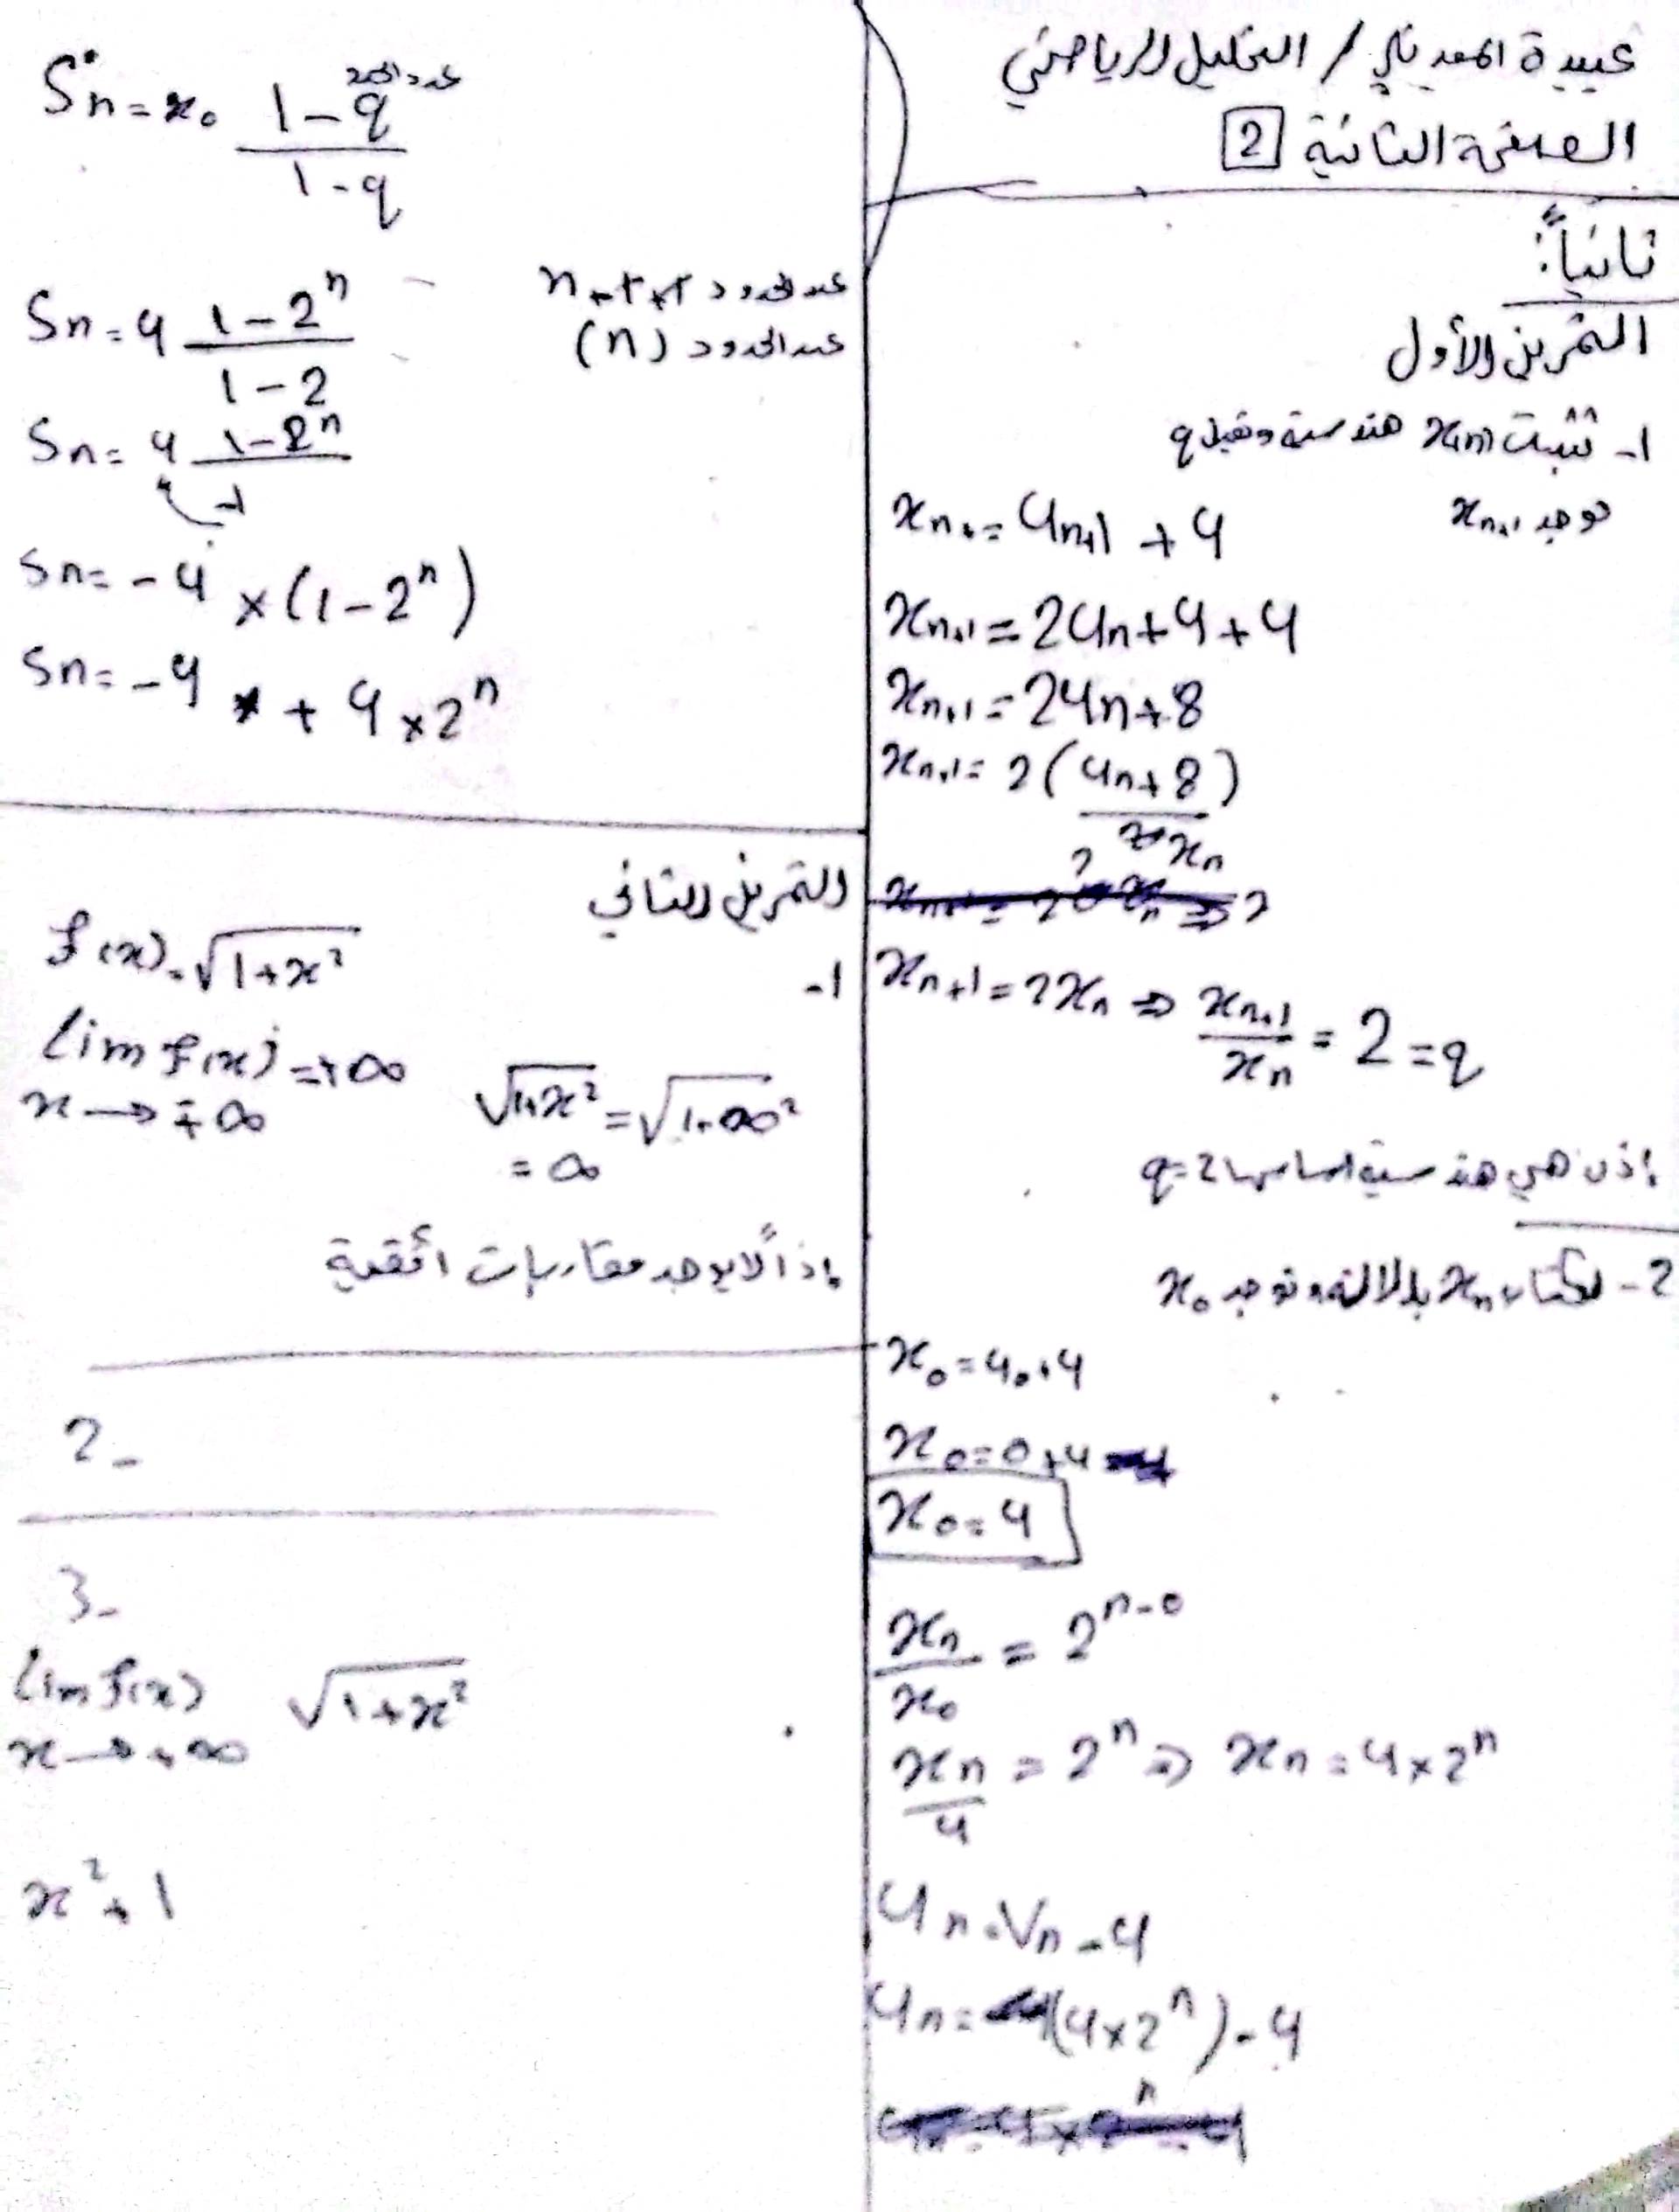 عبيدة المعدني / التحليل الرياضي
الصفحة الثانية 2
ثانياً:
التمرين الأول
1- نثبت xn هندسية ونعين q
نوجد xn+1
xn+1 = un+1 + 4
xn+1 = 2un + 4 + 4
xn+1 = 2un + 8
xn+1 = 2(un + 8)
xn
xn+1 = 2xn ⇒ xn+1/xn = 2 = q
إذن هي هندسية أساسها q=2
2- لكتابة xn بدلالة n نوجد x0
x0 = u0 + 4
x0 = 0 + 4
x0 = 4
xn/x0 = 2^(n-0)
xn/4 = 2^n ⇒ xn = 4 × 2^n
un = Vn - 4
un = (4×2^n) - 4
Sn = x0 (1 - q^عدد الحدود)/(1 - q)
عدد الحدود (n)
Sn = 4 (1 - 2^n)/(1 - 2)
Sn = 4 (1 - 2^n)/-1
Sn = -4 × (1 - 2^n)
Sn = -4 + 4 × 2^n
التمرين الثاني
1-
f(x) = √(1+x²)
lim f(x) = +∞
x → ∓∞
√(1+x²) = √(1+∞²)
= ∞
إذاً لا يوجد مقاربات أفقية
2-
3-
lim f(x) √(1+x²)
x → +∞
x² + 1